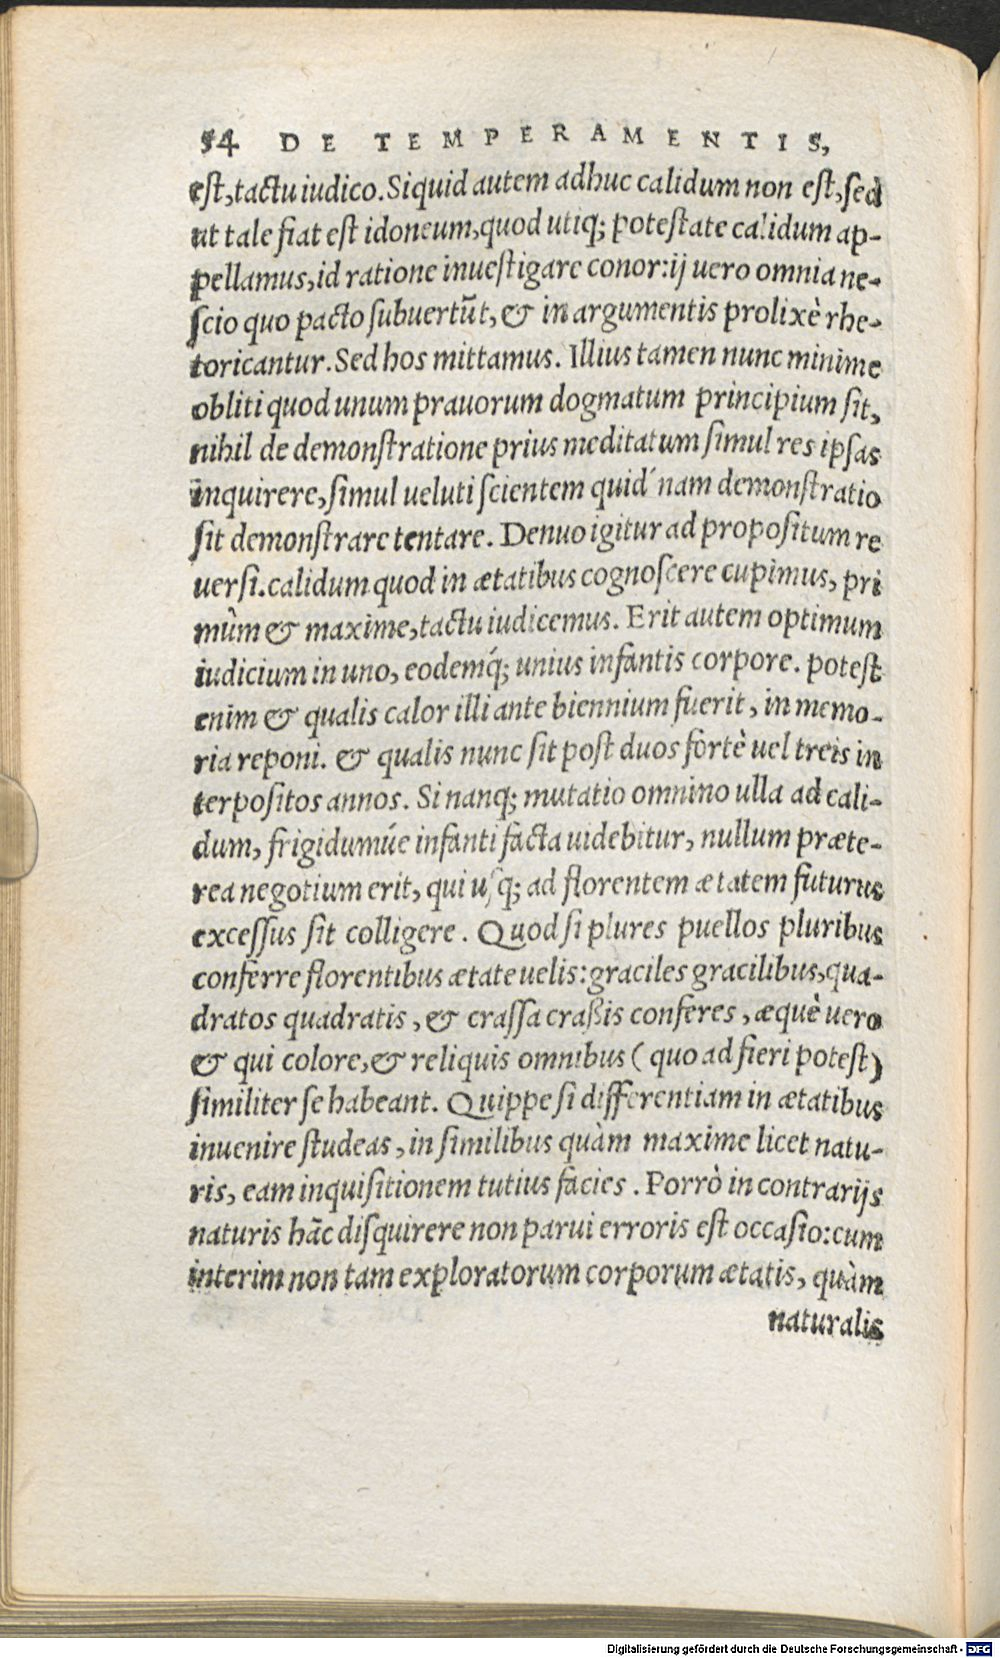 54 DE TEMPERAMENTIS,
est, tactu iudico. Siquid autem adhuc calidum non est, sed
ut tale fiat est idoneum, quod utiq; potestate calidum ap-
pellamus, id ratione inuestigare conor: ij uero omnia ne-
scio quo pacto subuertũt, & in argumentis prolixè rhe-
toricantur. Sed hos mittamus. Illius tamen nunc minime
obliti quod unum prauorum dogmatum principium sit,
nihil de demonstratione prius meditatum simul res ipsas
inquirere, simul ueluti scientem quid nam demonstratio
sit demonstrare tentare. Denuo igitur ad propositum re
uersi. calidum quod in ætatibus cognoscere cupimus, pri
mùm & maxime, tactu iudicemus. Erit autem optimum
iudicium in uno, eodemq́; unius infantis corpore. potest
enim & qualis calor illi ante biennium fuerit, in memo-
ria reponi. & qualis nunc sit post duos fortè uel treis in
terpositos annos. Si nanq; mutatio omnino ulla ad cali-
dum, frigidumúe infanti facta uidebitur, nullum præte-
rea negotium erit, qui usq; ad florentem ætatem futurus
excessus sit colligere. Quod si plures puellos pluribus
conferre florentibus ætate uelis: graciles gracilibus, qua-
dratos quadratis, & crassa craßis conferes, æquè uero
& qui colore, & reliquis omnibus (quo ad fieri potest)
similiter se habeant. Quippe si differentiam in ætatibus
inuenire studeas, in similibus quàm maxime licet natu-
ris, eam inquisitionem tutius facies. Porrò in contrarijs
naturis hãc disquirere non parui erroris est occasio: cum
interim non tam exploratorum corporum ætatis, quàm
naturalis
Digitalisierung gefördert durch die Deutsche Forschungsgemeinschaft - DFG